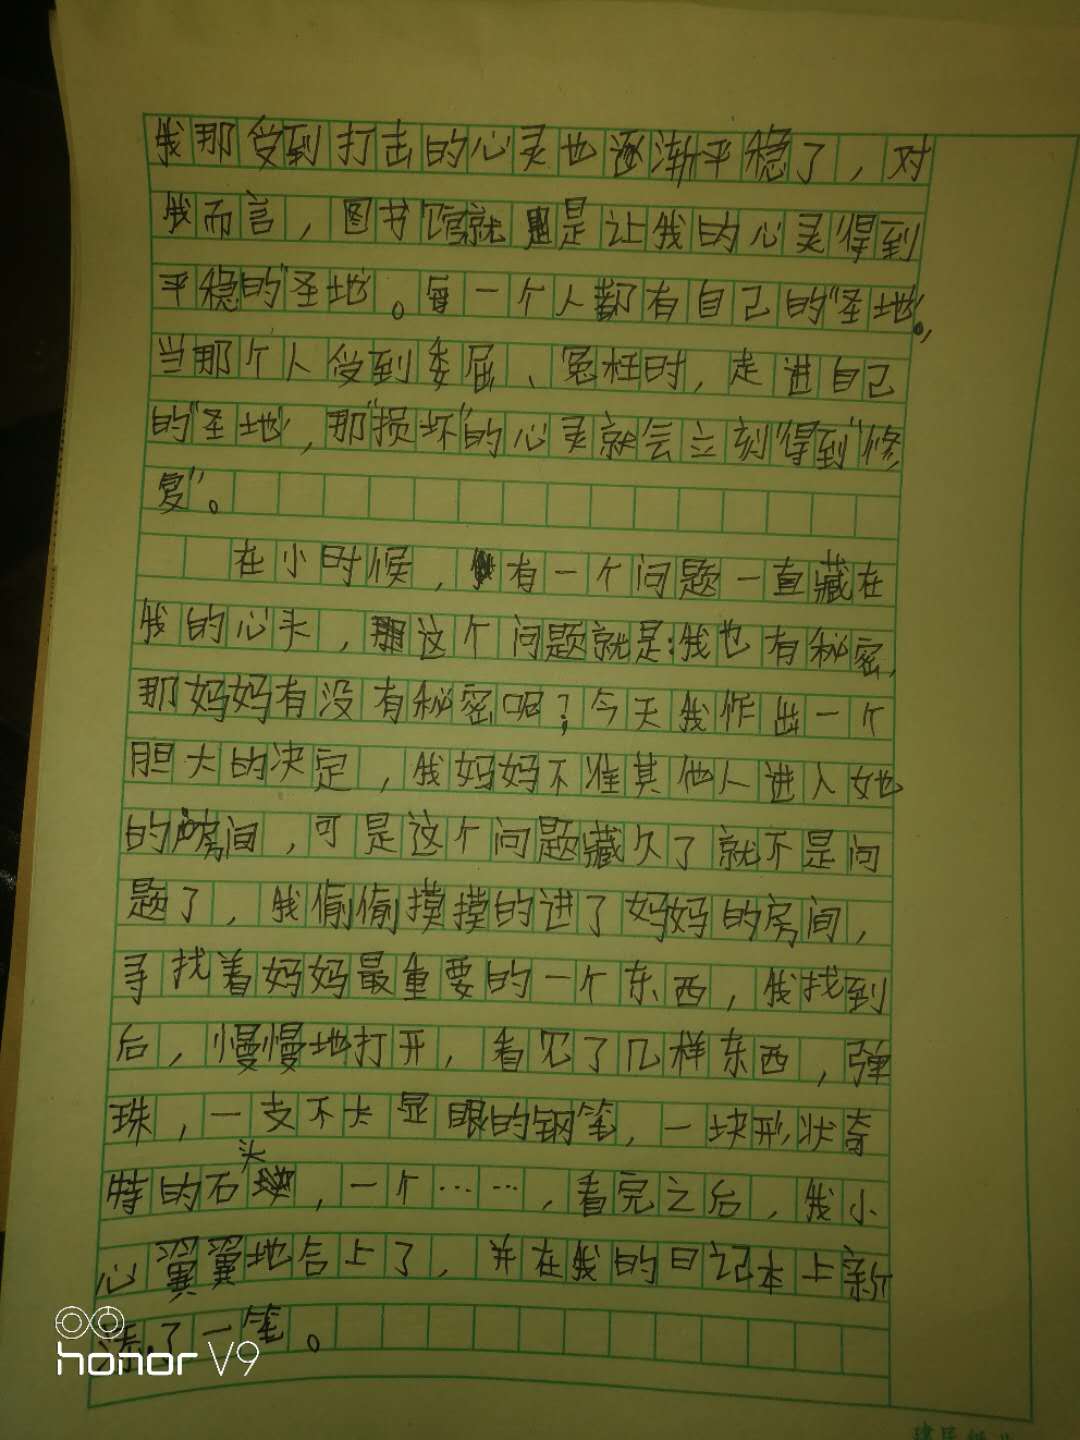 我那受到打击的心灵也逐渐平稳了，对
我而言，图书馆就是让我的心灵得到
平稳的"圣地。每一个人都有自己的"圣地"。
当那个人受到委屈、冤枉时，走进自己
的"圣地"，那"损坏"的心灵就会立刻"得到"修
复"。
在小时候，有一个问题一直藏在
我的心头，这个问题就是：我也有秘密，
那妈妈有没有秘密呢？今天我作出一个
胆大的决定，我妈妈不准其他人进入她
的房间，可是这个问题藏久了就不是问
题了，我偷偷摸摸的进了妈妈的房间，
寻找着妈妈最重要的一个东西，我找到
后，慢慢地打开，看见了几样东西，弹
珠，一支不太显眼的钢笔，一块形状奇
特的石头，一个……，看完之后，我小
心翼翼地合上了，并在我的日记本上新
添了一笔。
honor V9